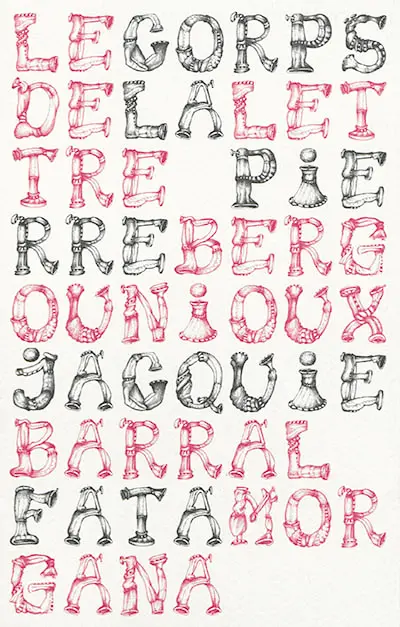 LECORPS
DELALET
TRE PiE
RREBERG
OUNiOUX
jACQUiE
BARRAL
FATAMOR
GANA